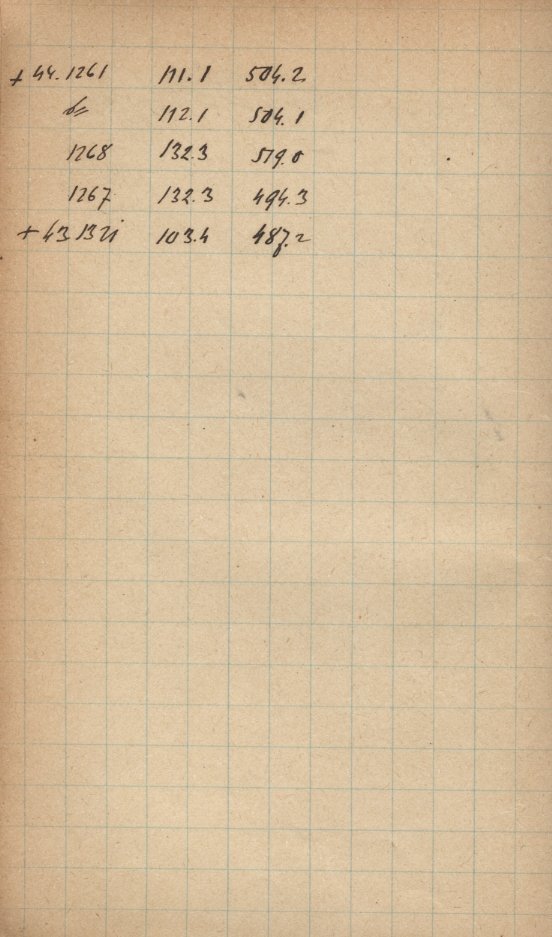 + 44.1261 111.1 504.2
112.1 504.1
1268 132.3 519.0
1267 132.3 494.3
+ 43 1321 103.4 487.2